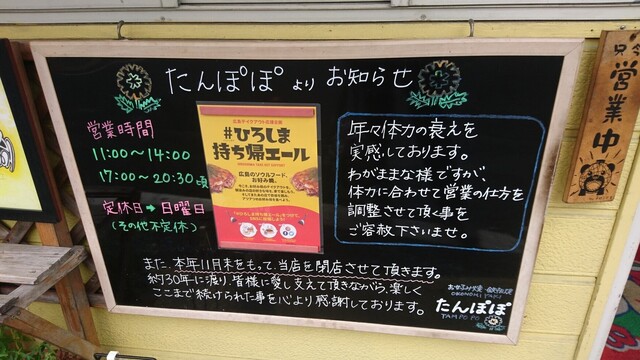 たんぽぽ より お知らせ
営業時間
11:00～14:00
17:00～20:30頃
定休日→日曜日
(その他不定休)
広島テイクアウト応援企画
#ひろしま
持ち帰エール
広島のソウルフード、
お好み焼。
年々体力の衰えを
実感しております。
わがままな様ですが、
体力に合わせて営業の仕方を
調整させて頂く事を
ご容赦下さいませ。
また、本年11月末をもって、当店を閉店させて頂きます。
約30年に渡り、皆様に愛し支えて頂きながら、楽しく
ここまで続けられた事を心より感謝しております。
OKONOMIYAKI
たんぽぽ
TAMPOPO
只今
営業中